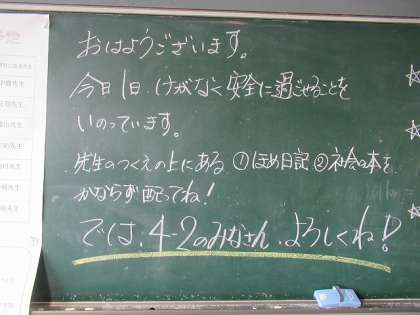 おはようございます。
今日1日、けがなく安全に過ごせることを
いのっています。
先生のつくえの上にある ①ほめ日記 ②社会の本を
かならず配ってね!
では、4-2のみなさん、よろしくね!